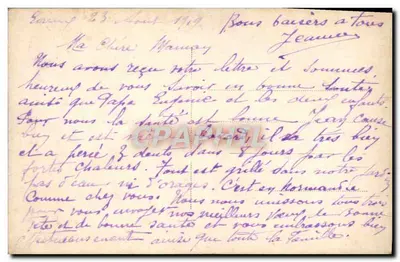 23 Août 1919
Bons baisers à tous
Jeanne
Ma Chère Maman
Nous avons reçu votre lettre et sommes
heureux de vous savoir en bonne santée
ainsi que Papa Eugénie et les deux enfants
Pour nous la santé est bonne Jean cause
bien et est il va très bien
et a percé 3 dents dans 8 jours par les
fortes chaleurs. Tout est grillé sans notre
pas d'eau ni d'orages. C'est en normandie
comme chez vous. Nous nous unissons tous trois
pour vous envoyer nos meilleurs vœux de bonne
fête et de bonne santé et vous embrassons bien
affectueusement ainsi que toute la famille.